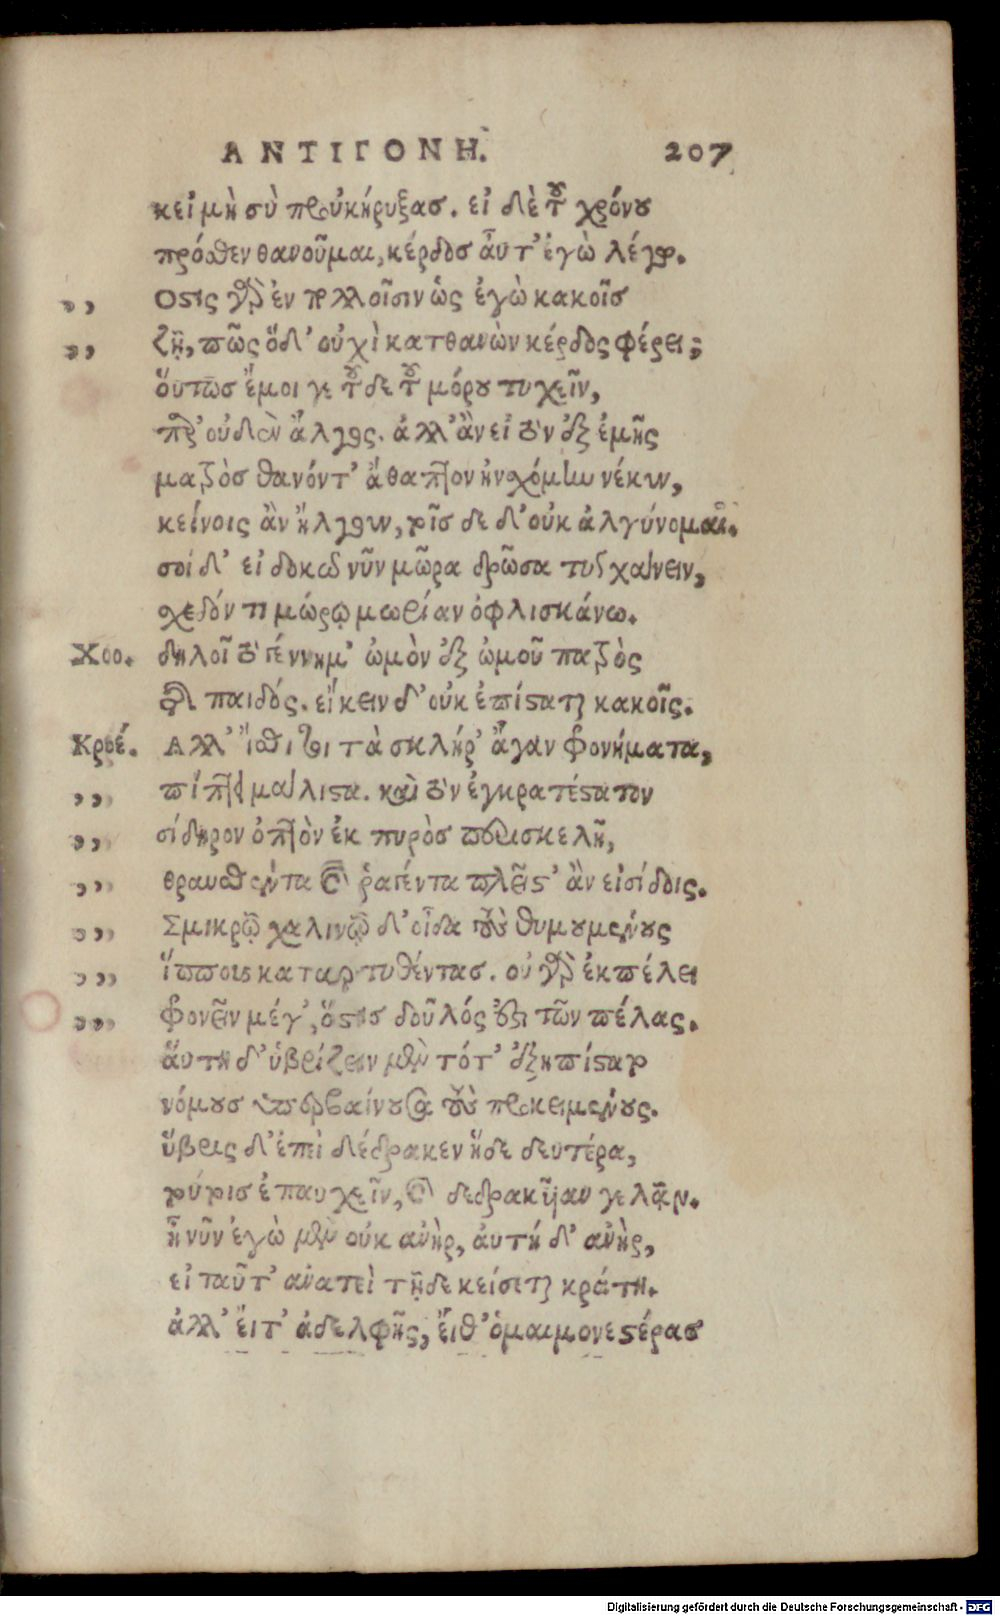 ΑΝΤΙΓΟΝΗ. 207
κεἰ μὴ σὺ προὐκήρυξας. εἰ δὲ τοῦ χρόνου
πρόσθεν θανοῦμαι, κέρδος αὖτ' ἐγὼ λέγω.
,, Ὅστις γὰρ ἐν πολλοῖσιν ὡς ἐγὼ κακοῖς
,, ζῇ, πῶς ὅδ' οὐχὶ κατθανὼν κέρδος φέρει;
οὕτως ἔμοι γε τοῦ δε τοῦ μόρου τυχεῖν,
παρ' οὐδὲν ἄλγος. ἀλλ' ἂν εἰ τὸν ἐξ ἐμῆς
μητρὸς θανόντ' ἄθαπτον ἠνσχόμην νέκυν,
κείνοις ἂν ἤλγουν, τοῖς δε δ' οὐκ ἀλγύνομαι.
σοὶ δ' εἰ δοκῶ νῦν μῶρα δρῶσα τυγχάνειν,
σχεδόν τι μώρῳ μωρίαν ὀφλισκάνω.
Χορ. δηλοῖ τὸ γέννημ' ὠμὸν ἐξ ὠμοῦ πατρὸς
τῆς παιδός. εἴκειν δ' οὐκ ἐπίσταται κακοῖς.
Κρέ. Ἀλλ' ἴσθι τοι τὰ σκλήρ' ἄγαν φρονήματα,
,, πίπτειν μάλιστα. καὶ τὸν ἐγκρατέστατον
,, σίδηρον ὀπτὸν ἐκ πυρὸς περισκελῆ,
,, θραυσθέντα καὶ ῥαγέντα πλεῖστ' ἂν εἰσίδοις.
,, Σμικρῷ χαλινῷ δ' οἶδα τοὺς θυμουμένους
,,, ἵππους καταρτυθέντας. οὐ γὰρ ἐκπέλει
,,, φρονεῖν μέγ', ὅστις δοῦλός ἐστι τῶν πέλας.
αὕτη δ' ὑβρίζειν μὲν τότ' ἐξηπίστατο
νόμους ὑπερβαίνουσα τοὺς προκειμένους.
ὕβρις δ' ἐπεὶ δέδρακεν ἥδε δευτέρα,
τούτοις ἐπαυχεῖν, καὶ δεδρακυῖαν γελᾶν.
ἦ νῦν ἐγὼ μὲν οὐκ ἀνὴρ, αὐτὴ δ' ἀνὴρ,
εἰ ταῦτ' ἀνατεὶ τῇδε κείσεται κράτη.
ἀλλ' εἴτ' ἀδελφῆς, εἴθ' ὁμαιμονεστέρας
Digitalisierung gefördert durch die Deutsche Forschungsgemeinschaft - DFG